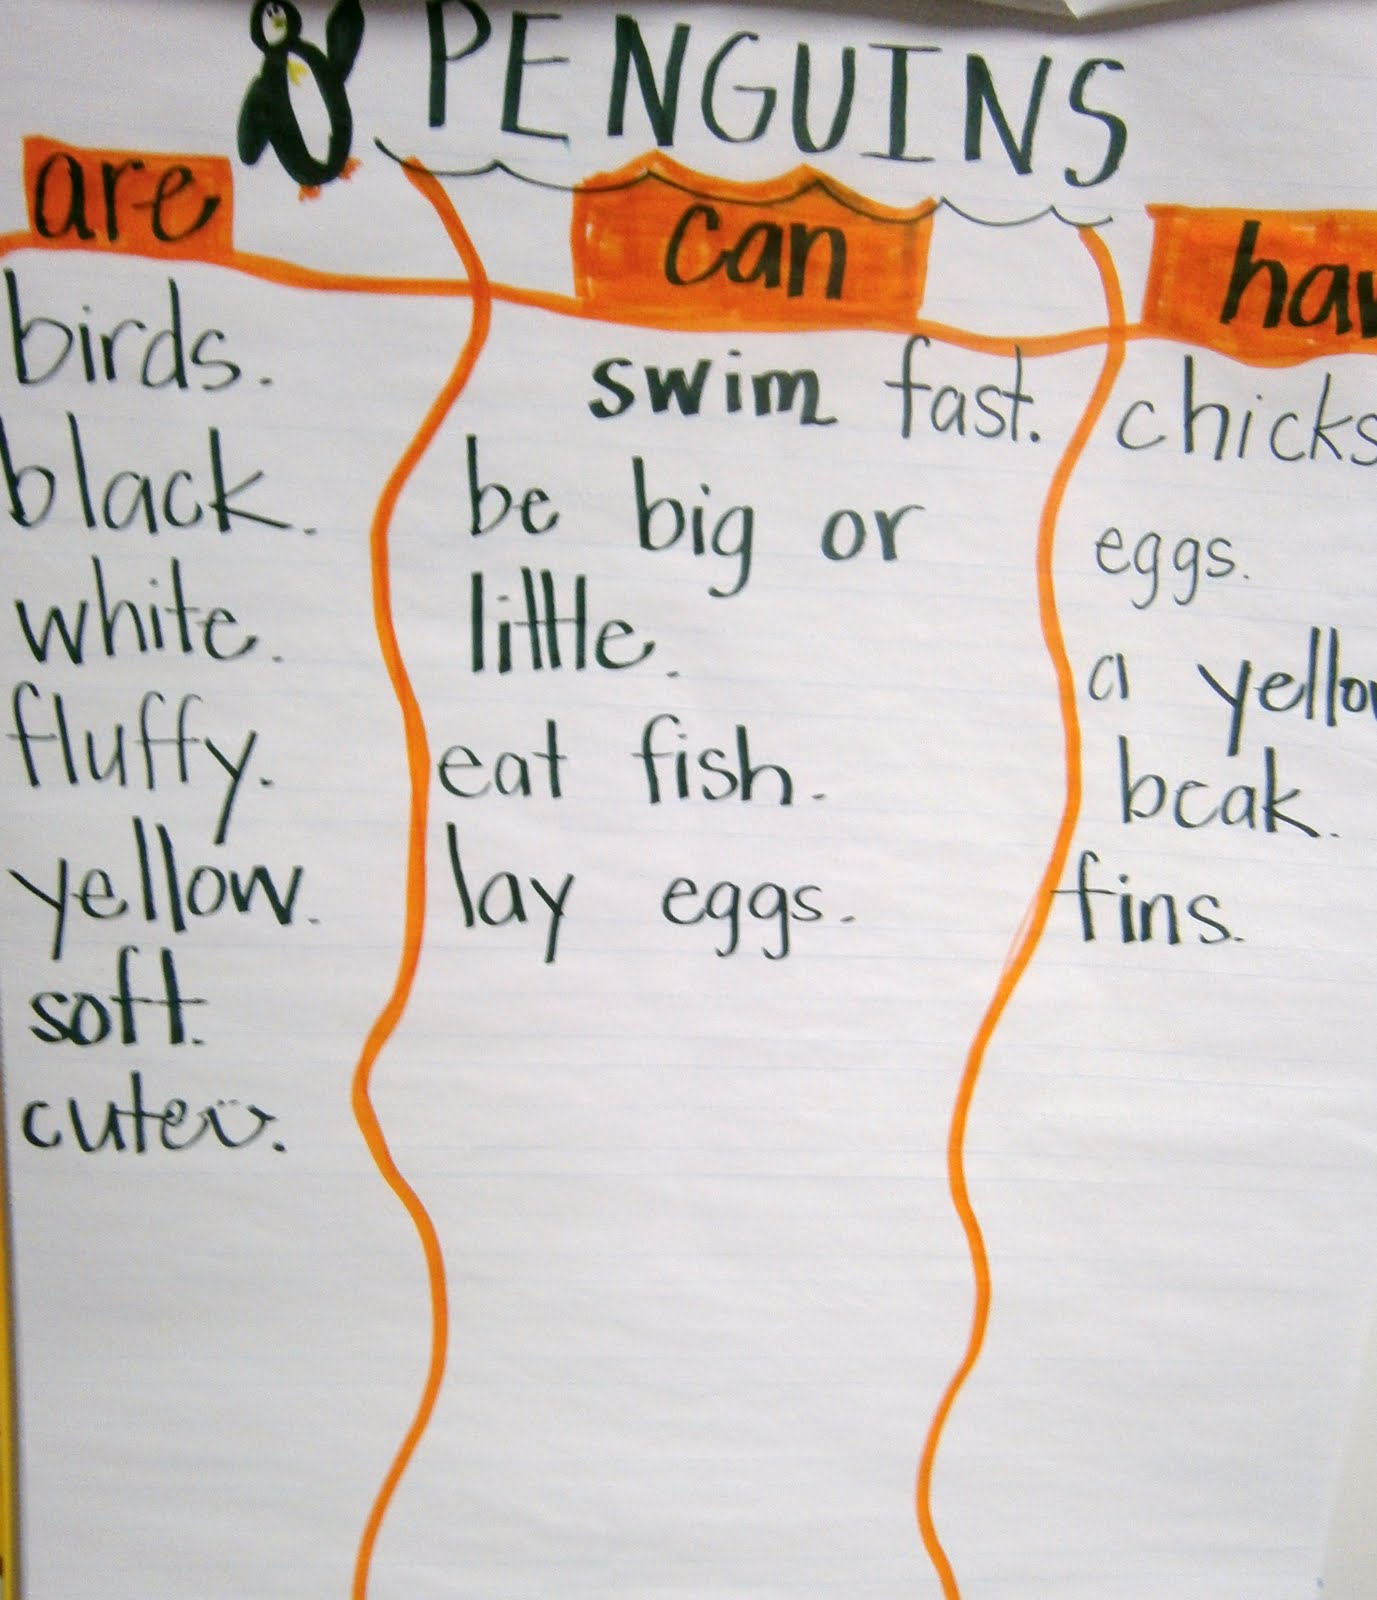 PENGUINS
are
birds.
black.
white.
fluffy.
yellow.
soft.
cute.
can
swim fast.
be big or
little.
eat fish.
lay eggs.
hav
chicks
eggs.
a yellow
beak.
fins.